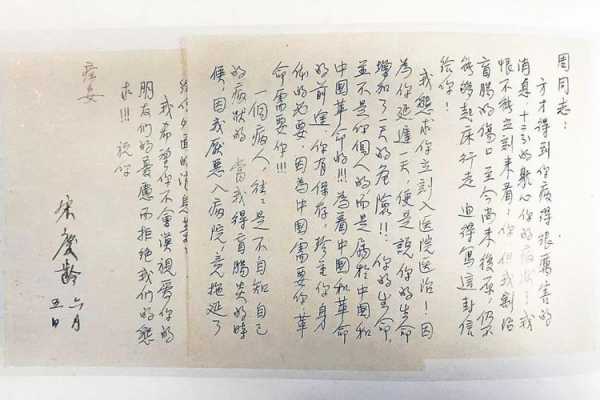 周同志:
方才得到你病得很厲害的
消息,十二分的耽心你的病狀!我
恨不能立刻來看看你,但我割治
盲腸的傷口至今尚未復原,仍不
能夠起床行走,迫得寫這封信
給你!
我懇求你立刻入医院医治!因
為你延遲一天,便是說你的生命
增加了一天的危險!!你的生命,
並不是你個人的,而是屬於中國和
中國革命的!!!為着中國和革命
的前途,你有保存,珍重你身
体的必要,因為中國需要你,革
命需要你!!!
一個病人,往往是不自知自己
的病狀的,當我得盲腸炎的時
候,因我厭惡入病院,竟拖延了
我希望你不會漠視愛你的
朋友們的憂慮而拒絕我們的懇
求!!!祝你
痊安
宋慶齡
六月
五日